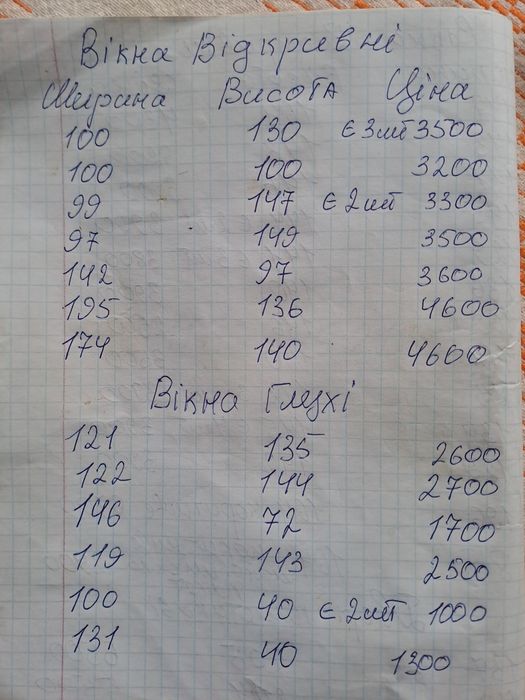 Вікна Відкривні
Ширина Висота Ціна
100 130 є 3шт 3500
100 100 3200
99 147 є 2шт 3300
97 149 3500
142 97 3600
195 136 4600
174 140 4600
Вікна Глухі
121 135 2600
122 144 2700
146 72 1700
119 143 2500
100 40 є 2шт 1000
131 40 1300